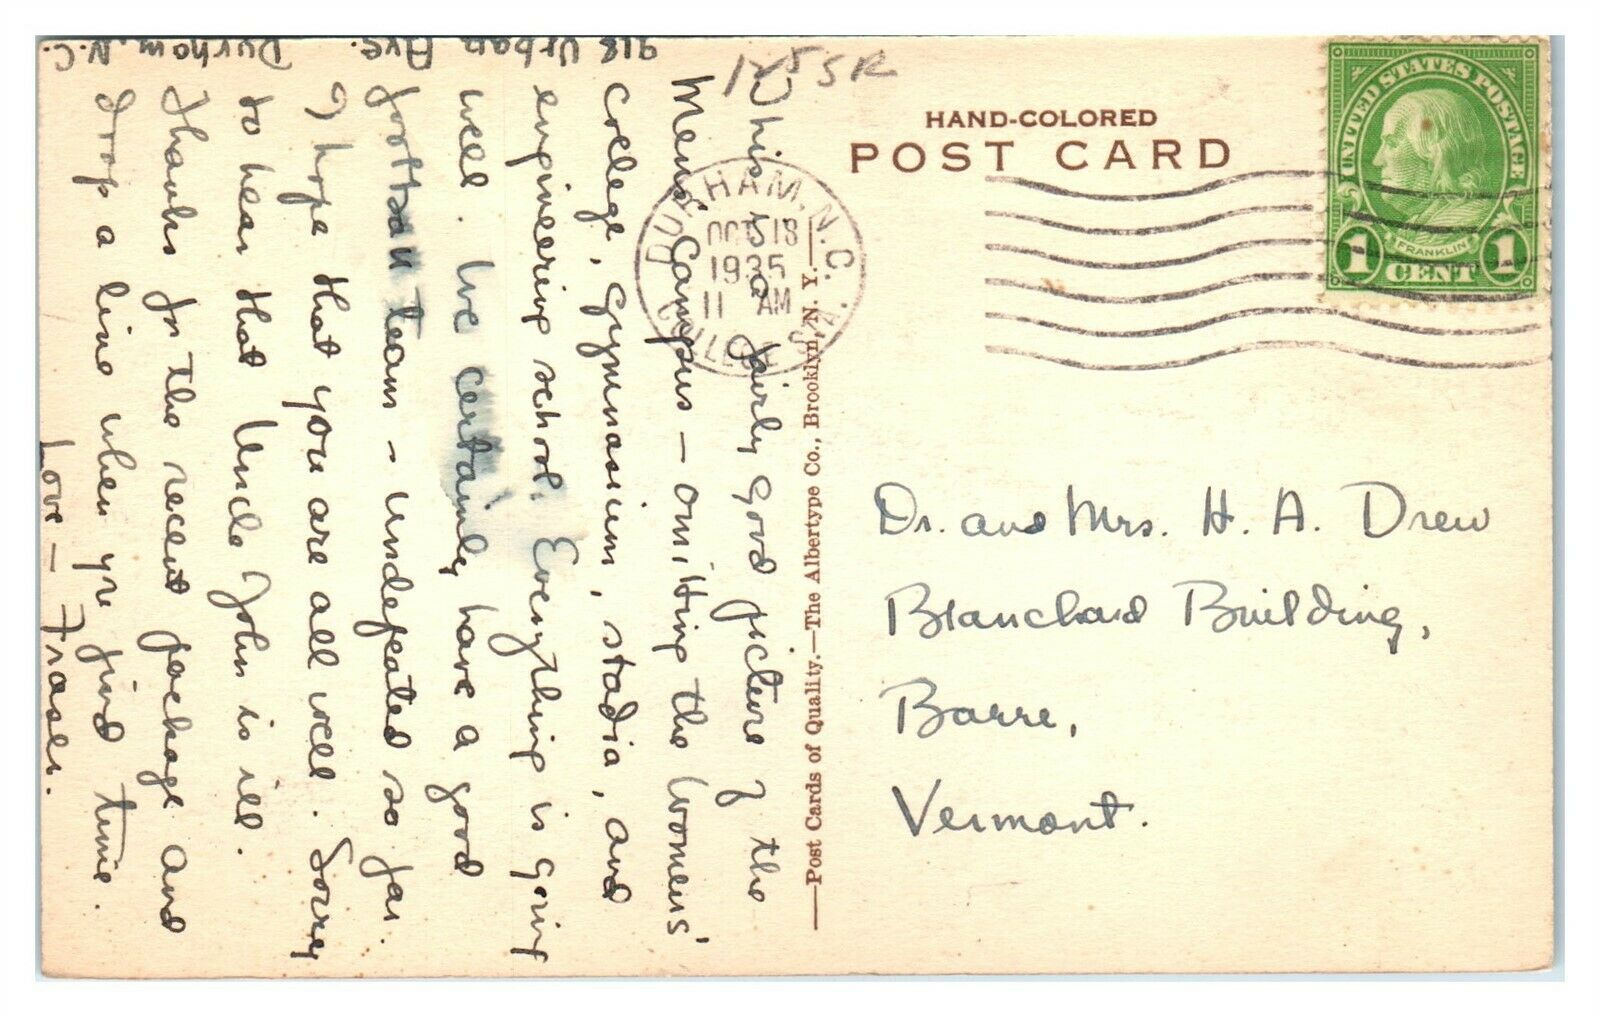 918 Urban Ave.
Durham, N.C.
This is a fairly good picture of the
Mens' Campus — omitting the Womens'
College, gymnasium, stadia, and
engineering school. Everything is going
well. We certainly have a good
football team - undefeated so far.
I hope that you are all well. Sorry
to hear that Uncle John is ill.
Thanks for the recent package and
drop a line when you find time.
Love — Fraser.
1285SR
HAND-COLORED
POST CARD
DURHAM, N.C.
OCT 18
1935
11 AM
UNITED STATES POSTAGE
FRANKLIN
1 CENT 1
—Post Cards of Quality.—The Albertype Co., Brooklyn, N. Y.—
Dr. and Mrs. H. A. Drew
Blanchard Building,
Barre,
Vermont.